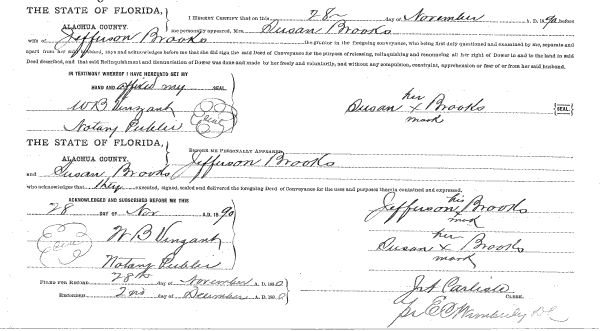 THE STATE OF FLORIDA,
ALACHUA COUNTY.
I HEREBY CERTIFY that on this 28 day of November A. D. 1890 before
me personally appeared, Mrs. Susan Brooks
wife of Jefferson Brooks the grantor in the foregoing conveyance, who being first duly questioned and examined by me, separate and
apart from her said husband, says and acknowledges before me that she did sign the said Deed of Conveyance for the purpose of releasing, relinquishing and renouncing all her right of Dower in and to the land in said
Deed described, and that said Relinquishment and Renunciation of Dower was done and made by her freely and voluntarily, and without any compulsion, constraint, apprehension or fear of or from her said husband.
IN TESTIMONY WHEREOF I HAVE HEREUNTO SET MY
HAND AND affixed my SEAL.
W B Vinzant Seal
Notary Public
her
Susan x Brooks {SEAL}
mark
THE STATE OF FLORIDA,
ALACHUA COUNTY.
BEFORE ME PERSONALLY APPEARED Jefferson Brooks
and Susan Brooks
who acknowledges that they executed, signed, sealed and delivered the foregoing Deed of Conveyance for the uses and purposes therein contained and expressed.
ACKNOWLEDGED AND SUBSCRIBED BEFORE ME THIS
28 DAY OF Nov A. D. 1890
Seal W B Vinzant
Notary Public
his
Jefferson x Brooks
mark
her
Susan x Brooks
mark
FILED FOR RECORD 28th day of November A. D. 1890
RECORDED 2nd day of December A. D. 1890
J A Carlisle CLERK.
Pr E C Wimberly DC